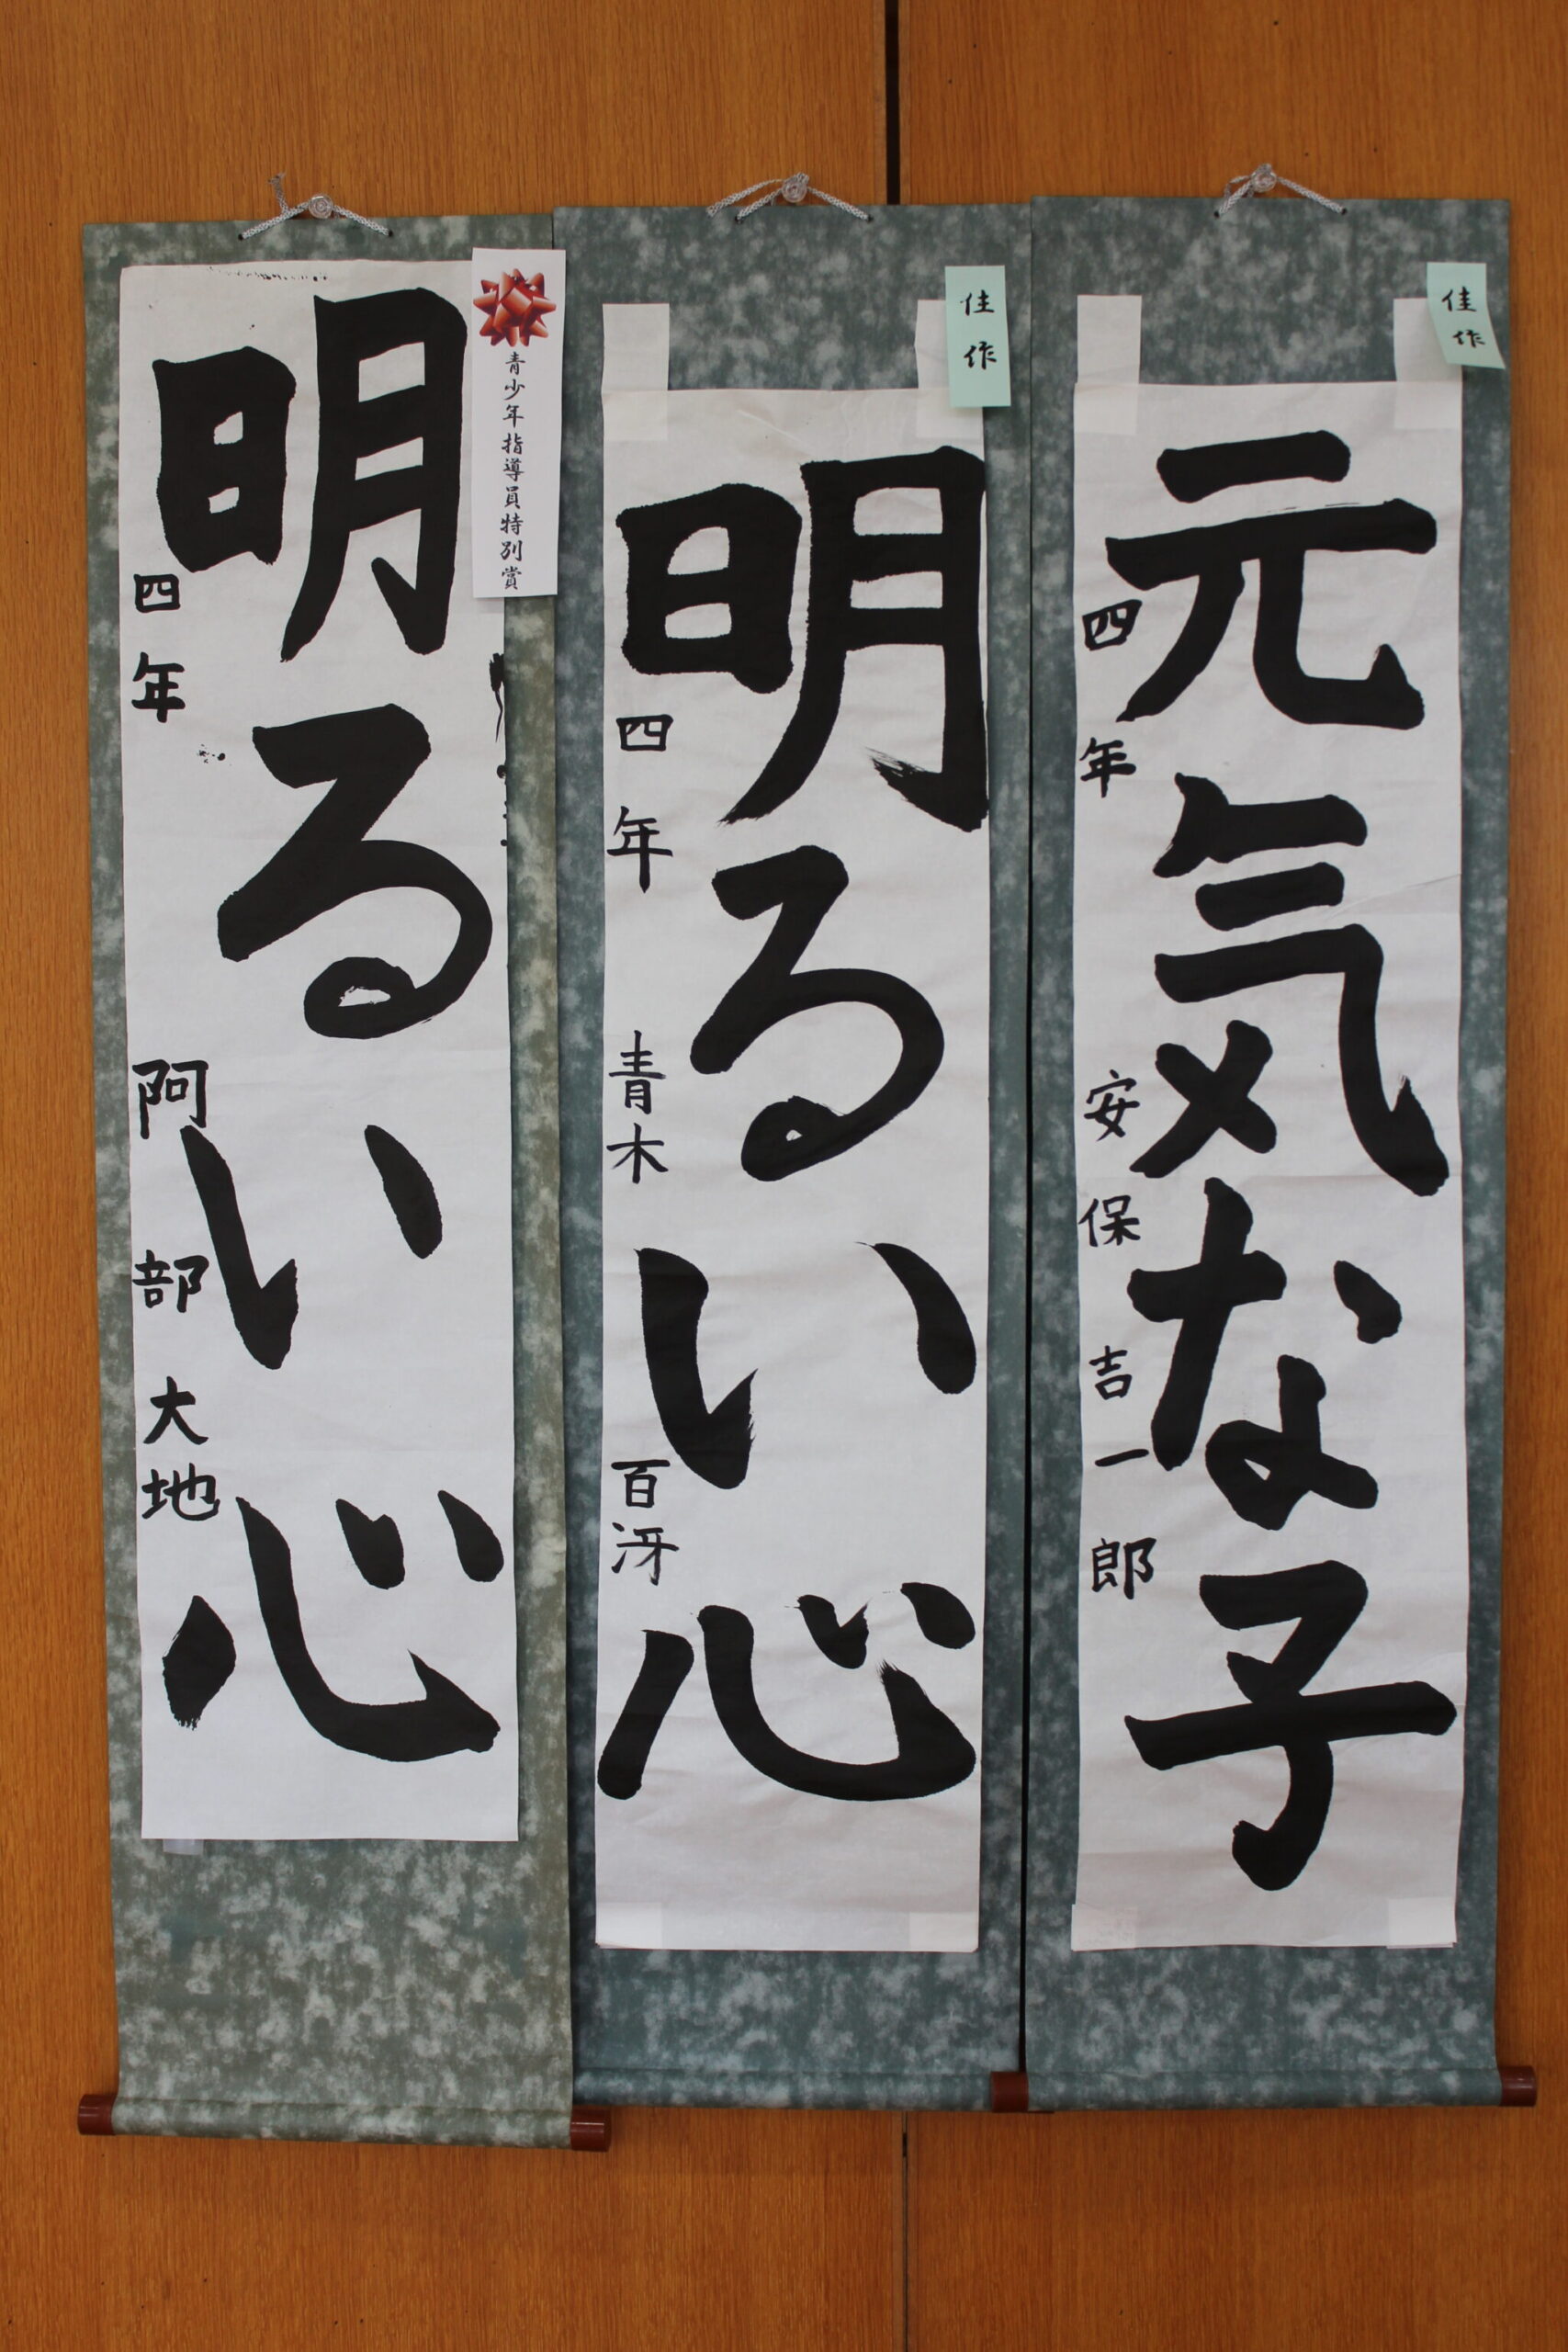 佳作
元気な子
四年 安保吉一郎
佳作
明るい心
四年 青木百冴
青少年指導員特別賞
明るい心
四年 阿部大地